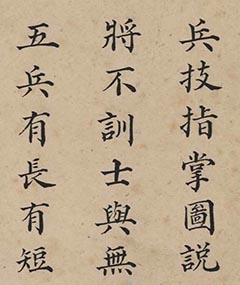 兵技指掌圖說
將不訓士與無
五兵有長有短